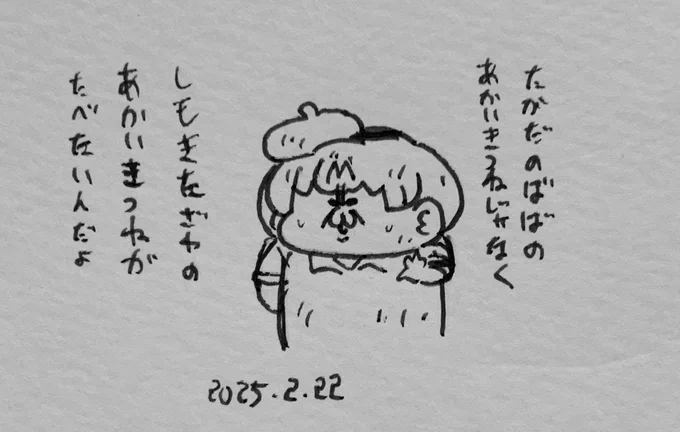 たかだのばばの
あかいきつねじゃなく
しもきたざわの
あかいきつねが
たべたいんだよ
2025.2.22